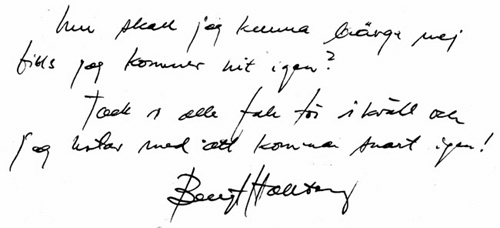 hur skall jag kunna bärga mej
tills jag kommer hit igen?
Tack i alla fall för ikväll och
jag hotar med att komma snart igen!
Bengt Hallberg